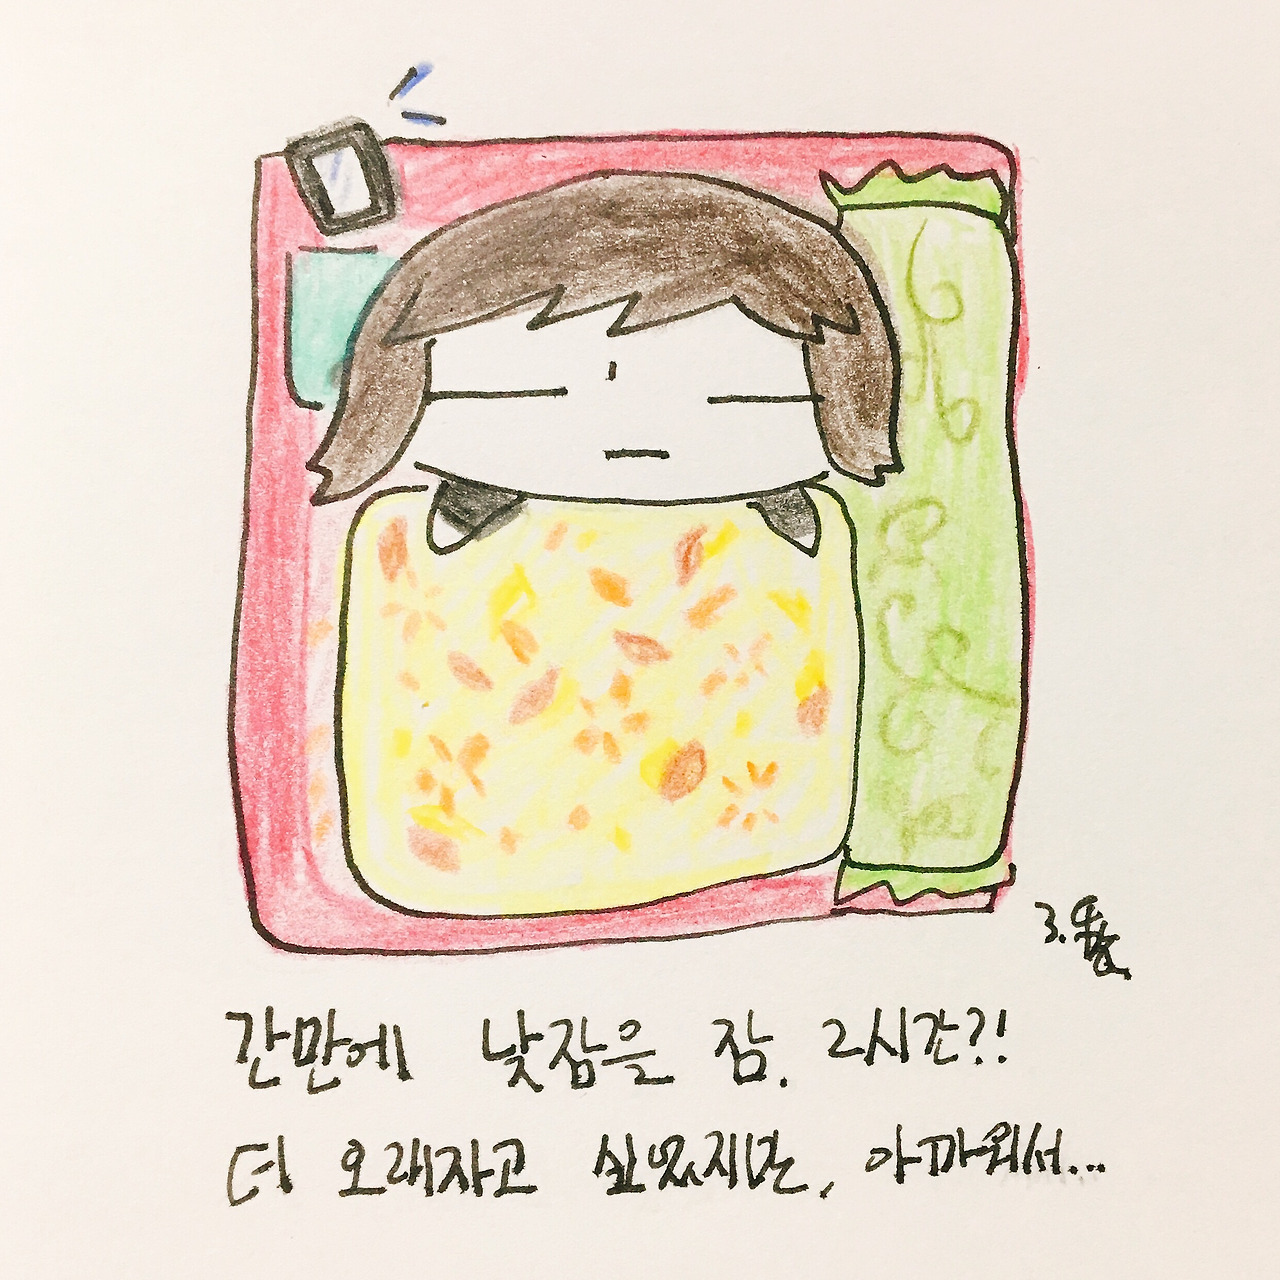 간만에 낮잠을 잠. 2시간?!
더 오래자고 싶었지만, 아까워서...